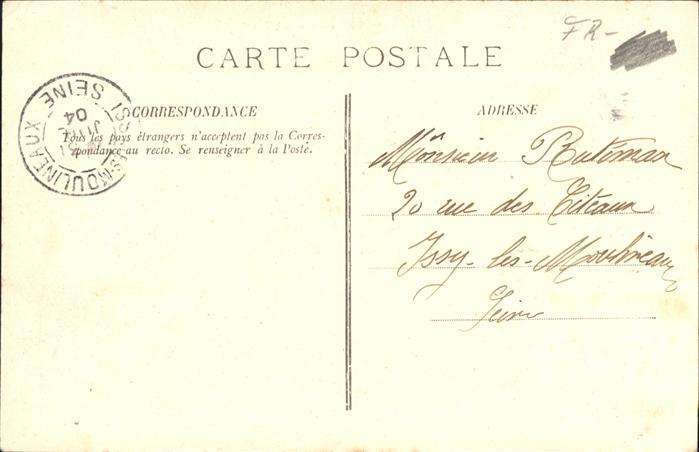 FR-
CARTE POSTALE
CORRESPONDANCE
Tous les pays étrangers n'acceptent pas la Corres-
pondance au recto. Se renseigner à la Poste.
ISSY-LES-MOULINEAUX
SEINE
04
ADRESSE
Monsieur
20 rue des
Issy-les-Moulineaux
Seine